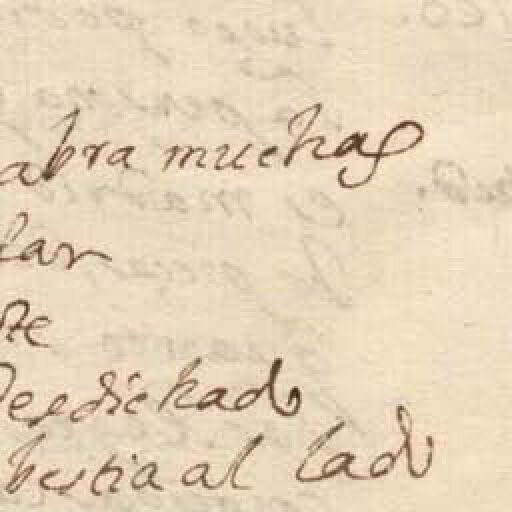 abra muchas
lar
ste
Desdichado
bestia al lado